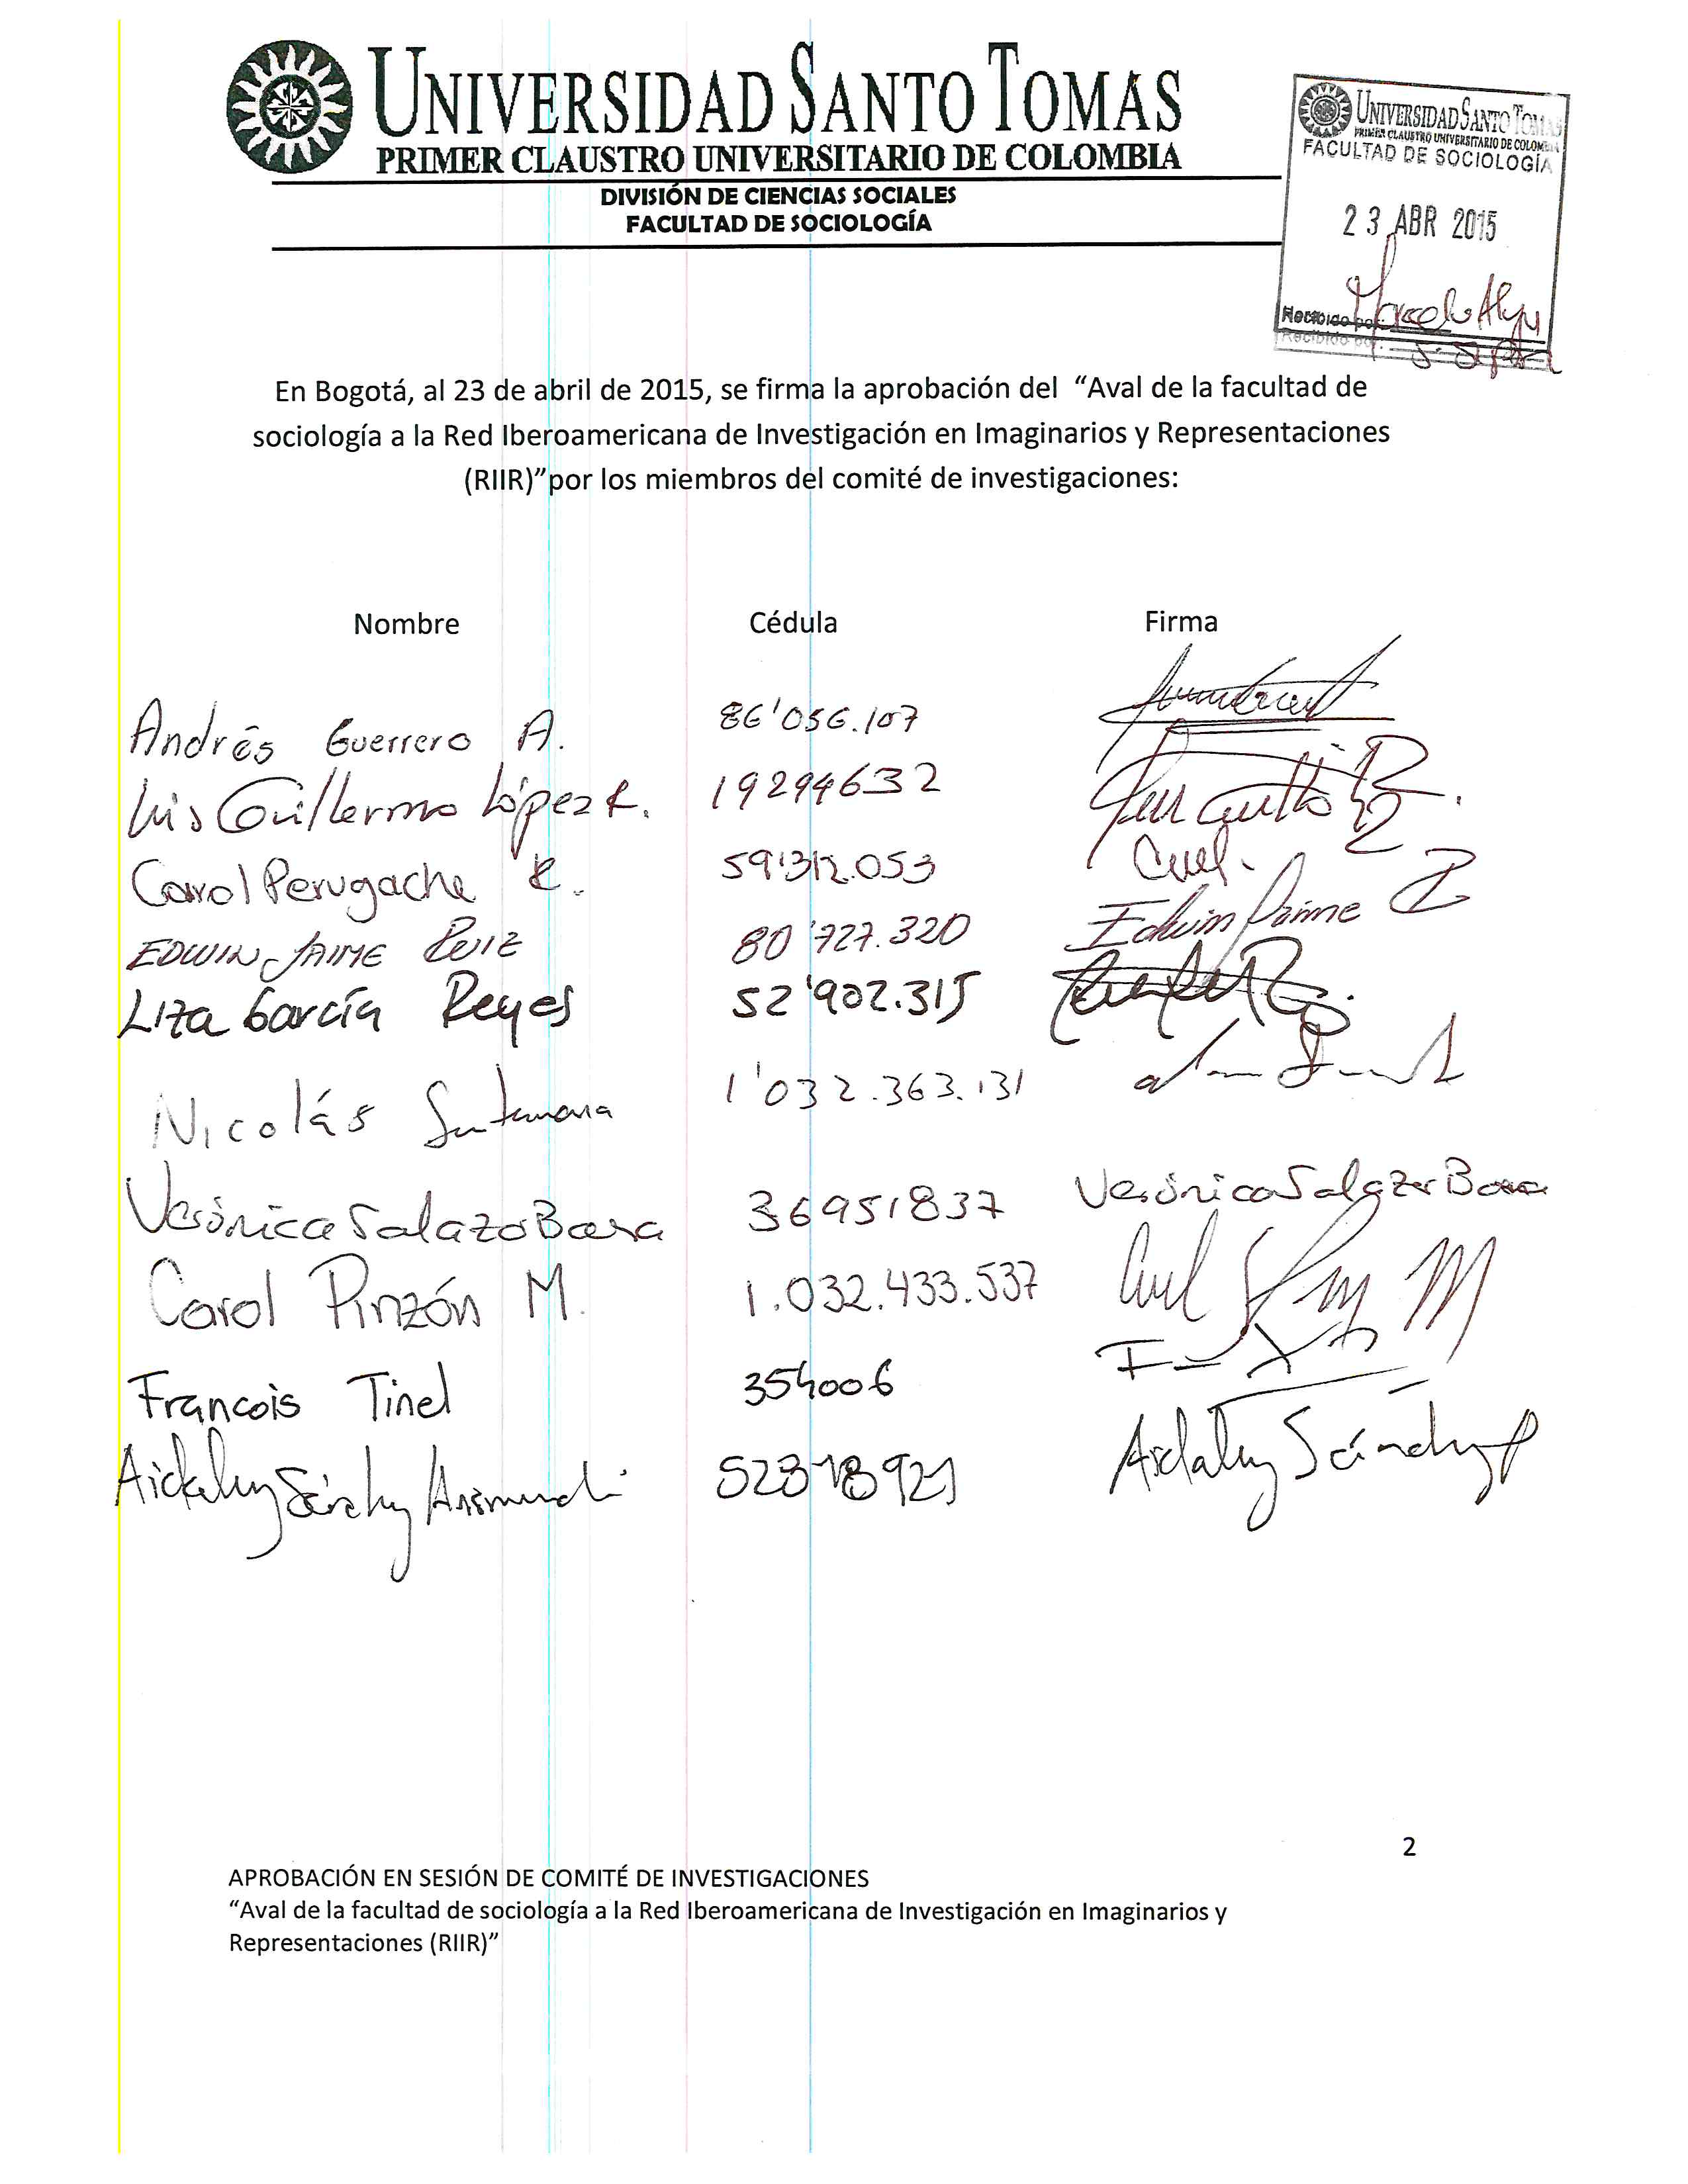 UNIVERSIDAD SANTO TOMAS
PRIMER CLAUSTRO UNIVERSITARIO DE COLOMBIA
DIVISIÓN DE CIENCIAS SOCIALES
FACULTAD DE SOCIOLOGÍA
UNIVERSIDAD SANTO TOMAS
PRIMER CLAUSTRO UNIVERSITARIO DE COLOMBIA
FACULTAD DE SOCIOLOGÍA
23 ABR 2015
Recibido por:
Recibido por:
En Bogotá, al 23 de abril de 2015, se firma la aprobación del “Aval de la facultad de
sociología a la Red Iberoamericana de Investigación en Imaginarios y Representaciones
(RIIR)”por los miembros del comité de investigaciones:
Nombre Cédula Firma
Andrés Guerrero A. 86'056.107
Luis Guillermo López R. 19294632
Carol Perugache R. 59'312.053
EDWIN JAIME RUIZ 80'727.320 Edwin Jaime R
Liza García Reyes 52'902.315
Nicolás Santamaria 1'032.363.131
Verónica Salazar Baena 36951837 Verónica Salazar Baena
Carol Pinzón M. 1.032.433.537
Francois Tinel 354006
Aidaluz Sánchez 52818921 Aidaluz Sánchez
2
APROBACIÓN EN SESIÓN DE COMITÉ DE INVESTIGACIONES
“Aval de la facultad de sociología a la Red Iberoamericana de Investigación en Imaginarios y
Representaciones (RIIR)”